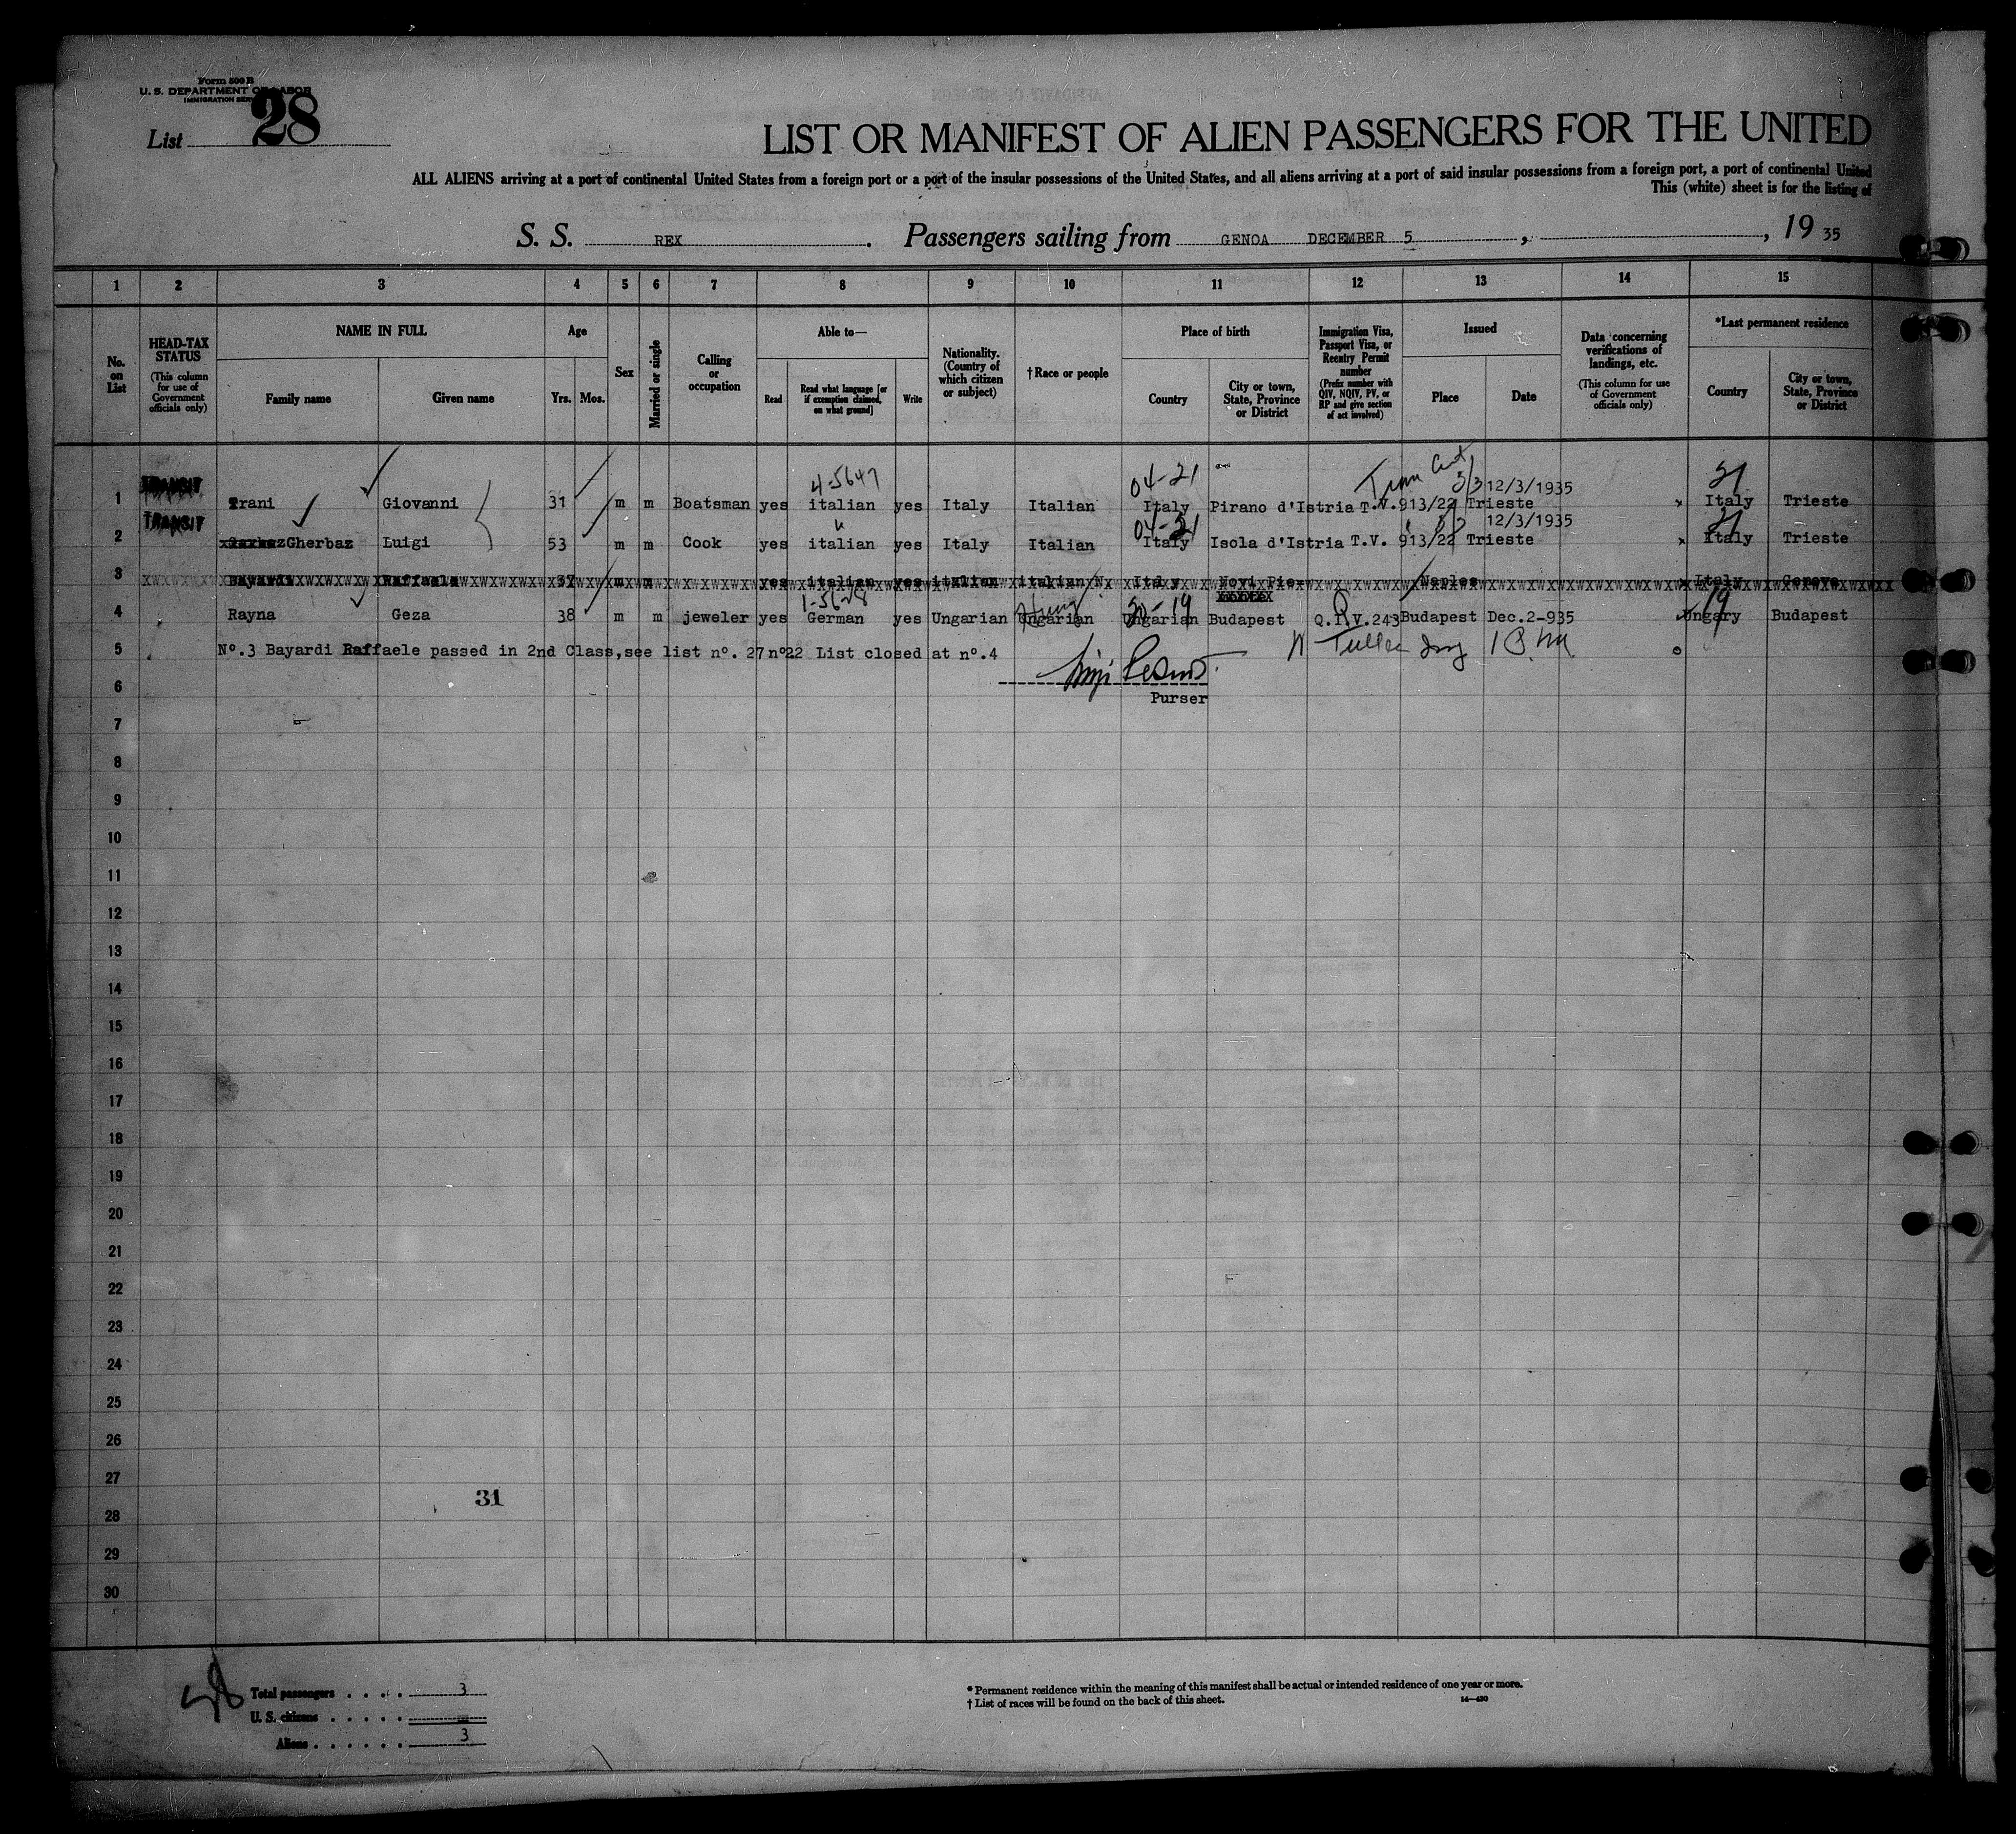 Form 500 B
U. S. DEPARTMENT OF LABOR
IMMIGRATION SERV
List 28
LIST OR MANIFEST OF ALIEN PASSENGERS FOR THE UNITED
ALL ALIENS arriving at a port of continental United States from a foreign port or a port of the insular possessions of the United States, and all aliens arriving at a port of said insular possessions from a foreign port, a port of continental United
This (white) sheet is for the listing of
S. S. REX . Passengers sailing from GENOA DECEMBER 5 , , 19 35
1 2 3 4 5 6 7 8 9 10 11 12 13 14 15
No. on List
HEAD-TAX STATUS (This column for use of Government officials only)
NAME IN FULL
Family name Given name
Age
Yrs. Mos.
Sex
Married or single
Calling or occupation
Able to—
Read Read what language [or if exemption claimed, on what ground] Write
Nationality. (Country of which citizen or subject)
† Race or people
Place of birth
Country City or town, State, Province or District
Immigration Visa, Passport Visa, or Reentry Permit number (Prefix number with QIV, NQIV, PV, or RP and give section of act involved)
Issued
Place Date
Data concerning verifications of landings, etc. (This column for use of Government officials only)
*Last permanent residence
Country City or town, State, Province or District
TRANSIT 4-5647 04-21 3/3 12/3/1935 21
1 Trani Giovanni 31 m m Boatsman yes italian yes Italy Italian Italy Pirano d'Istria T.V. 913/22 Trieste Italy Trieste
TRANSIT 04-21 3/3 12/3/1935 21
2 Gherbaz Luigi 53 m m Cook yes italian yes Italy Italian Italy Isola d'Istria T.V. 913/22 Trieste Italy Trieste
3 Bayardi Raffaele 37 m m yes italian yes italian italian N. Italy Novi Pie Naples Italy Genova
1-56-28 Hung 19
4 Rayna Geza 38 m m jeweler yes German yes Ungarian Ungarian Ungarian Budapest Q.I.V.243 Budapest Dec.2-935 Ungary Budapest
5 Nº.3 Bayardi Raffaele passed in 2nd Class,see list nº. 27 nº22 List closed at nº.4
6
Purser
7
8
9
10
11
12
13
14
15
16
17
18
19
20
21
22
23
24
25
26
27
31
28
29
30
28
Total passengers . . . . 3
U. S. citizens . . . . . =
Aliens . . . . . . 3
* Permanent residence within the meaning of this manifest shall be actual or intended residence of one year or more.
† List of races will be found on the back of this sheet. 14—430